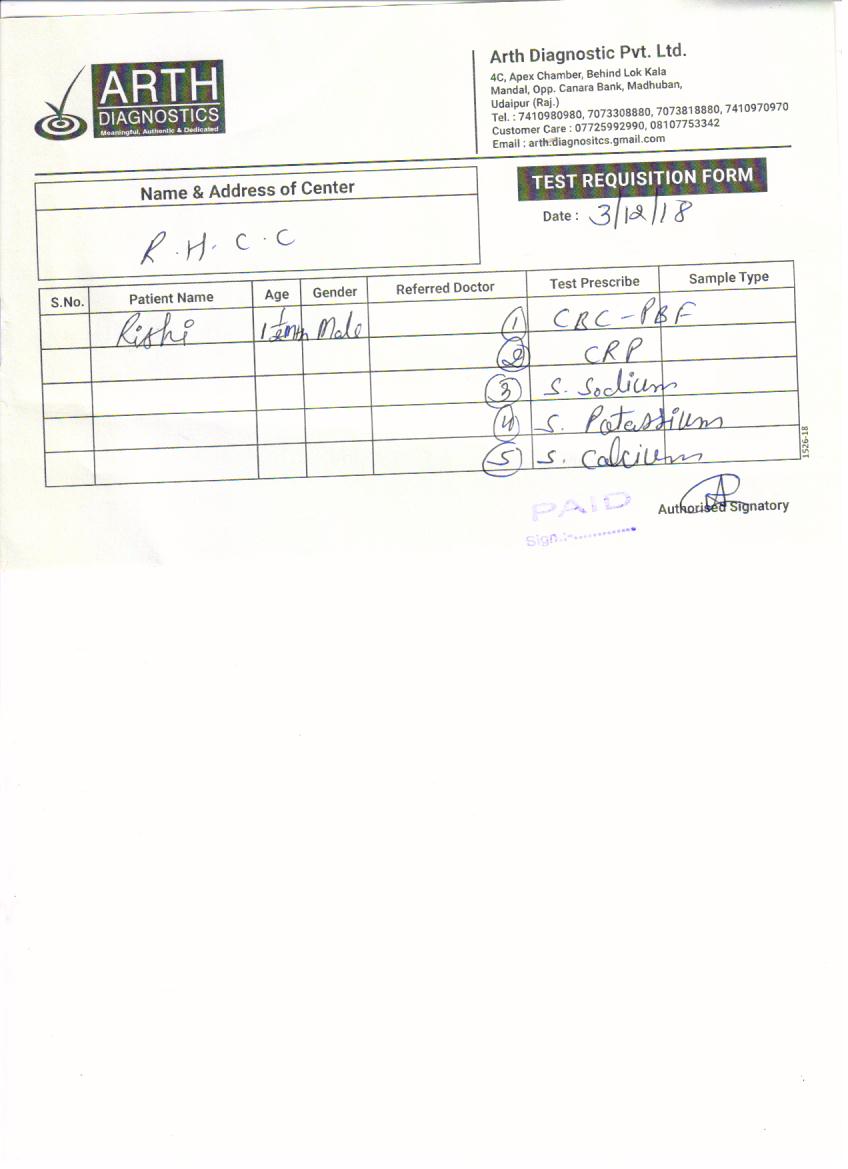 ARTH
DIAGNOSTICS
Meaningful, Authentic & Dedicated
Arth Diagnostic Pvt. Ltd.
4C, Apex Chamber, Behind Lok Kala
Mandal, Opp. Canara Bank, Madhuban,
Udaipur (Raj.)
Tel. : 7410980980, 7073308880, 7073818880, 7410970970
Customer Care : 07725992990, 08107753342
Email : arth.diagnositcs.gmail.com
Name & Address of Center
R.H.C.C
TEST REQUISITION FORM
Date : 3/12/18
S.No. Patient Name Age Gender Referred Doctor Test Prescribe Sample Type
Rishi 1 1/2 mth Male 1 CBC-PBF
2 CRP
3 S. Sodium
4 S. Potassium
5 S. Calcium
1526-18
PAID
Sign.:-............
Authorised Signatory